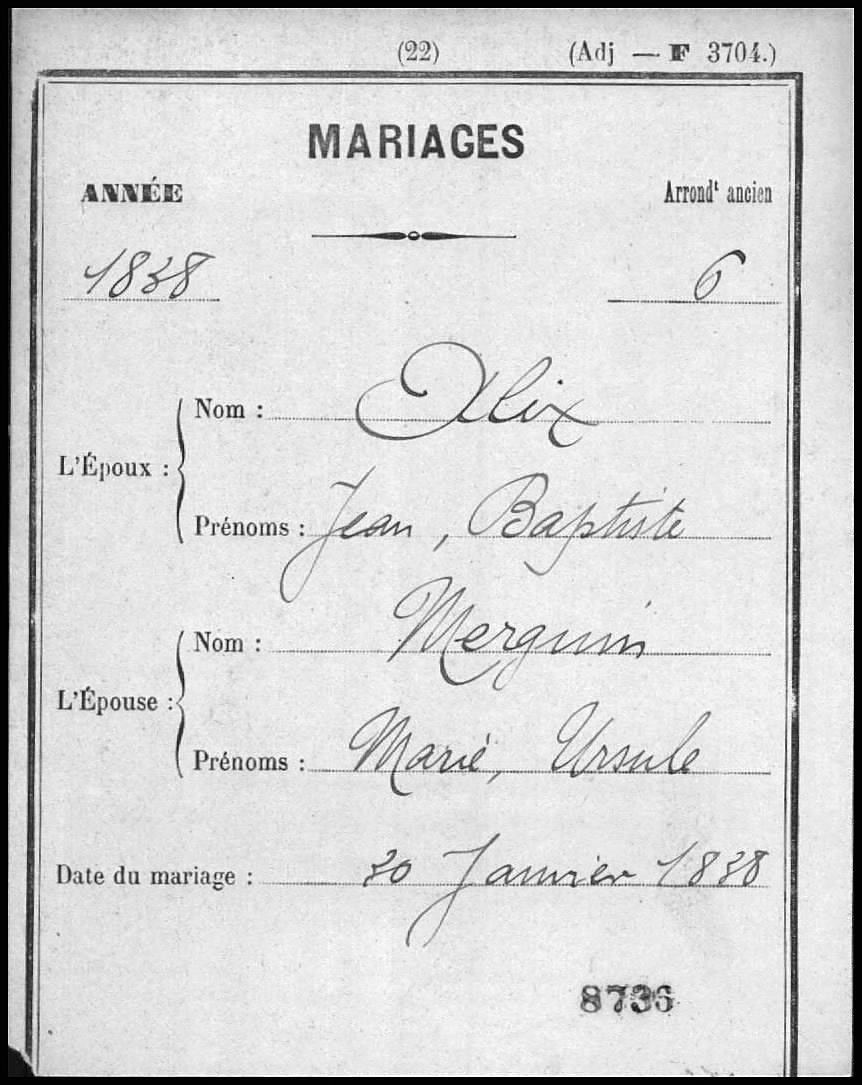 (22) (Adj — F 3704.)
MARIAGES
ANNÉE Arrondt ancien
1838 6
L'Époux :
Nom : Alix
Prénoms : Jean, Baptiste
L'Épouse :
Nom : Merguin
Prénoms : Marie, Ursule
Date du mariage : 30 Janvier 1838
8736